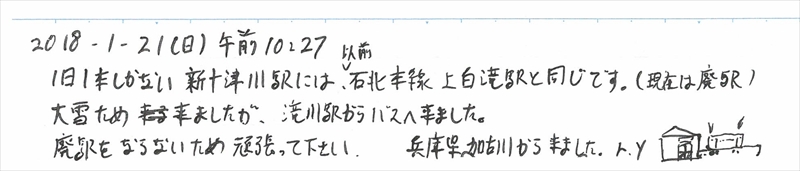 2018-1-21(日)午前10:27
1日1本しかない新十津川駅には、以前石北本線上白滝駅と同じです。(現在は廃駅)
大雪ため来ましたが、滝川駅からバスへ来ました。
廃駅をならないため頑張って下さい. 兵庫県加古川から来ました。 T.Y